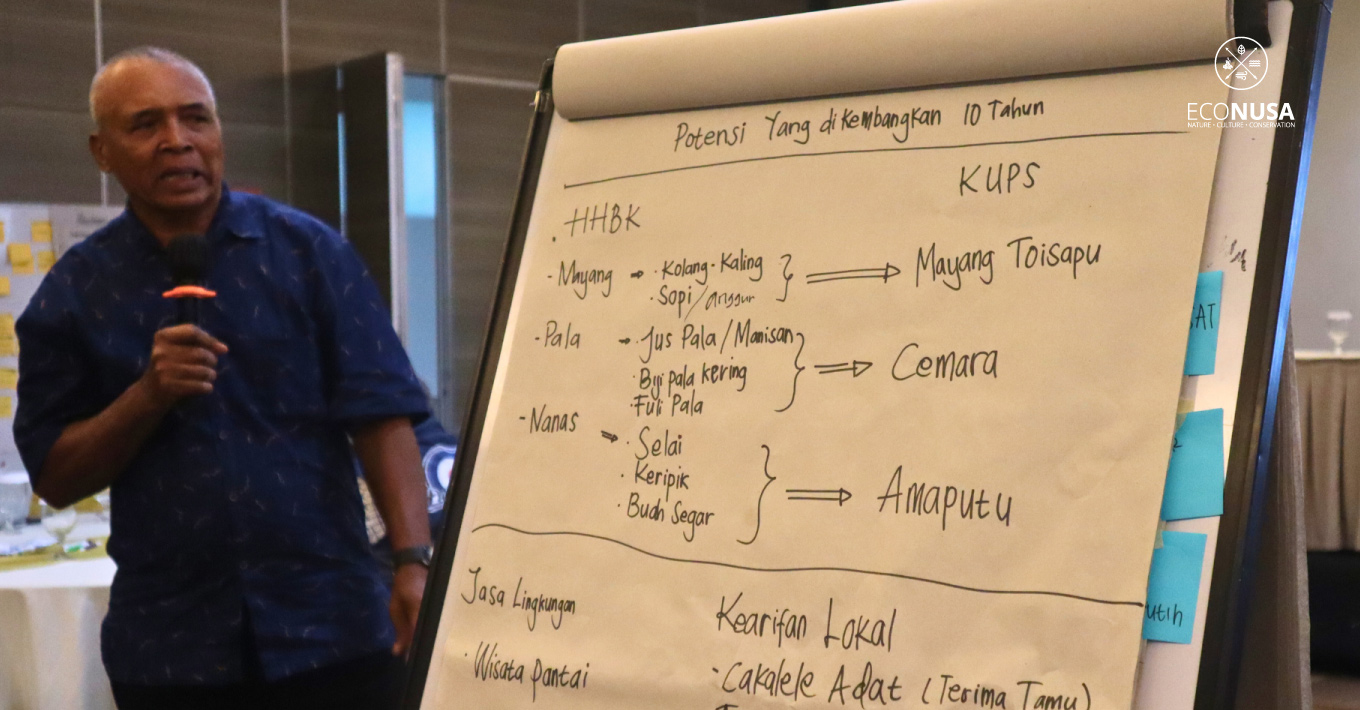 ECONUSA
NATURE • CULTURE • CONSERVATION
Potensi Yang dikembangkan 10 Tahun
KUPS
. HHBK
- Mayang → · Kolang-Kaling } ⇒ Mayang Toisapu
· Sopi/anggur
- Pala → · Jus Pala/Manisan } ⇒ Cemara
· Biji pala kering
· Fuli Pala
- Nanas ⇒ · Selai } ⇒ Amaputu
· Keripik
· Buah Segar
Jasa Lingkungan
Kearifan Lokal
· Wisata pantai
- Cakalele Adat (Terima Tamu)